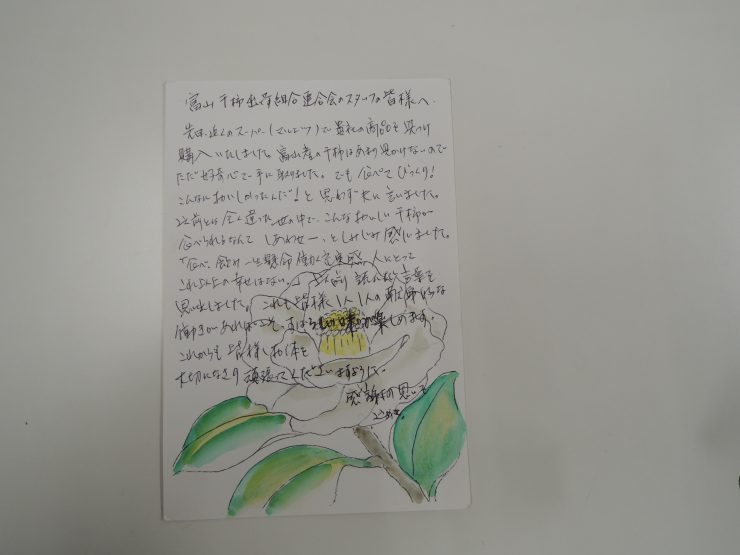 富山干柿出荷組合連合会のスタッフの皆様へ.
先日、近くのスーパー(マルエツ)で貴社の商品を見つけ
購入いたしました。富山産の干柿はあまり見かけないので
ただ好奇心で手に取りました。でも食べてびっくり!
こんなにおいしかったんだ!と思わず夫に言いました。
以前とは全く違った世の中で、こんなおいしい干柿が
食べられるなんて しあわせー、としみじみ感じました。
「食べ、飲み、一生懸命働く充実感、人にとって
これ以上の幸せはない。」以前 読んだ言葉を
思い出しました。これも皆様1人1人の
働きがあればこそ、すばらしい味が楽しめます。
これからも皆様、お体を
大切になさり 頑張ってくださいますように。
感謝の思いを
こめて。